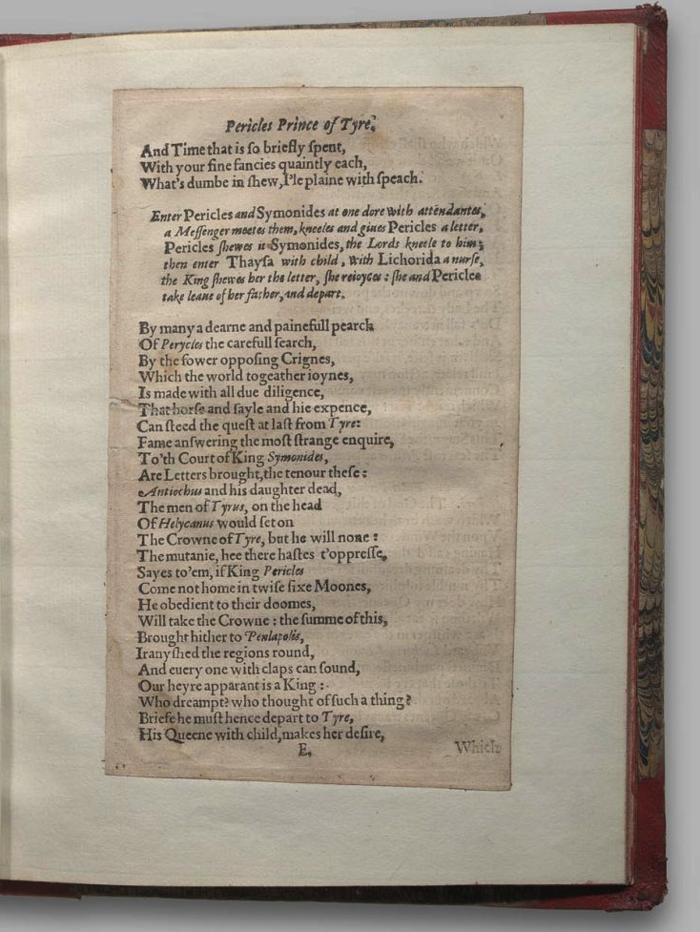 Pericles Prince of Tyre.
And Time that is ſo briefly ſpent,
With your fine fancies quaintly each,
What's dumbe in ſhew, I'le plaine with ſpeach.
Enter Pericles and Symonides at one dore with attendantes,
a Meſſenger meetes them, kneeles and giues Pericles a letter,
Pericles ſhewes it Symonides, the Lords kneele to him;
then enter Thayſa with child, with Lichorida a nurſe,
the King ſhewes her the letter, ſhe reioyces: ſhe and Pericles
take leaue of her father, and depart.
By many a dearne and painefull pearch
Of Perycles the carefull ſearch,
By the fower oppoſing Crignes,
Which the world togeather ioynes,
Is made with all due diligence,
That horſe and ſayle and hie expence,
Can ſteed the queſt at laſt from Tyre:
Fame anſwering the moſt ſtrange enquire,
To'th Court of King Symonides,
Are Letters brought, the tenour theſe:
Antiochus and his daughter dead,
The men of Tyrus, on the head
Of Helycanus would ſet on
The Crowne of Tyre, but he will none:
The mutanie, hee there haſtes t'oppreſſe,
Sayes to'em, if King Pericles
Come not home in twiſe ſixe Moones,
He obedient to their doomes,
Will take the Crowne: the ſumme of this,
Brought hither to Penlapolis,
Irany ſhed the regions round,
And euery one with claps can ſound,
Our heyre apparant is a King:
Who dreampt? who thought of ſuch a thing?
Briefe he muſt hence depart to Tyre,
His Queene with child, makes her deſire,
E. Which